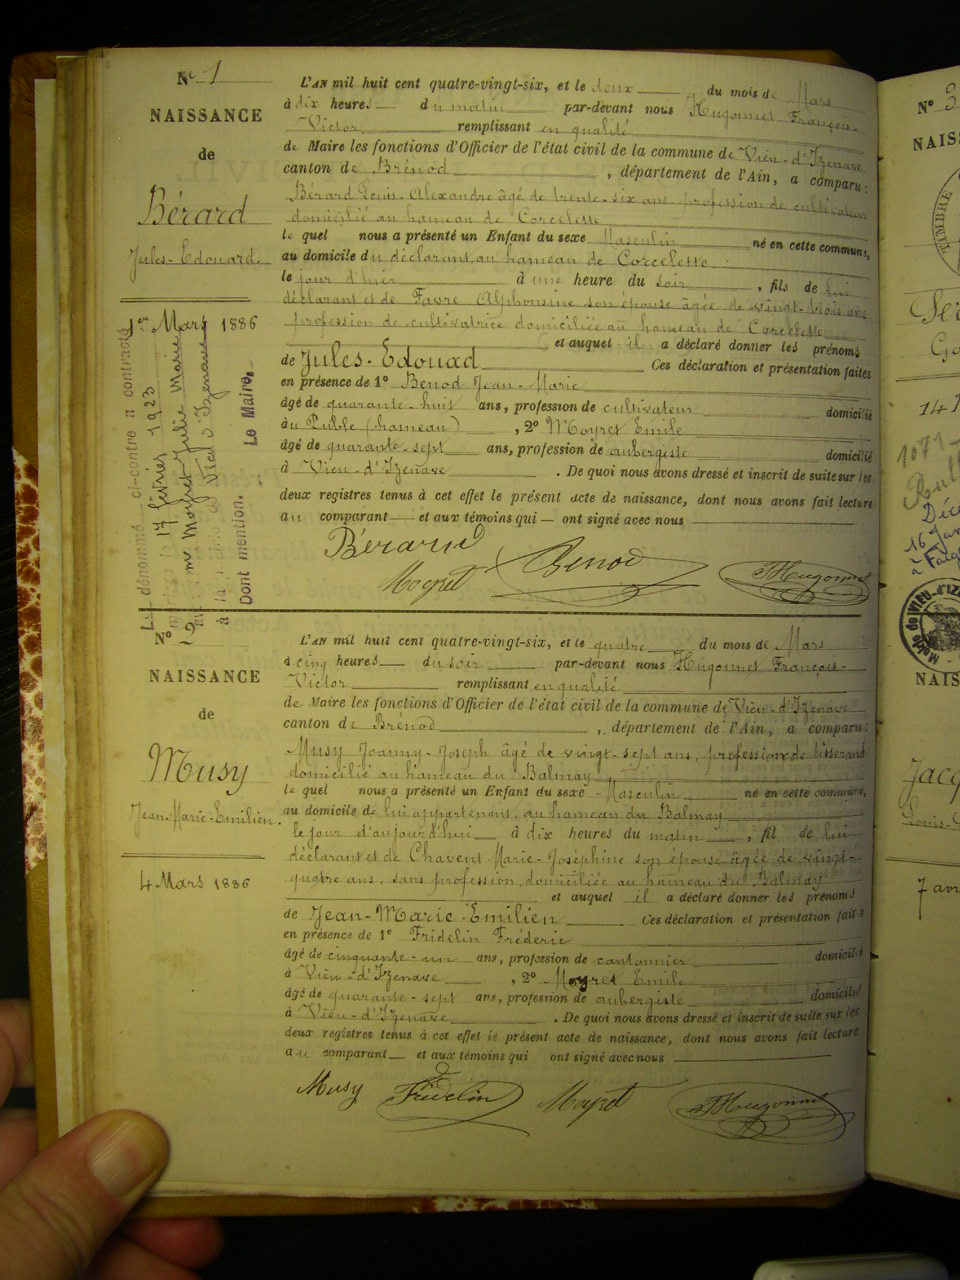 N° 1
NAISSANCE
de
Bérard
Jules-Edouard.
1er Mars 1886
Le dénommé ci-contre a contracté
17 février 1923
Moyret Julie Marie
Vieu d'Izenave
Dont mention. Le Maire,
L'AN mil huit cent quatre-vingt-six, et le deux du mois de Mars
à dix heures du matin par-devant nous Hugonnet François-
Victor remplissant en qualité
de Maire les fonctions d'Officier de l'état civil de la commune de Vieu-d'Izenave
canton de Brénod , département de l'Ain, a comparu:
Bérard Louis-Alexandre âgé de trente-six ans, profession de cultivateur
domicilié au hameau de Corcelette
le quel nous a présenté un Enfant du sexe Masculin né en cette commune,
au domicile du déclarant, au hameau de Corcelette
le jour d'hier à une heure du soir , fils de lui
déclarant et de Favre Alphonsine son épouse âgée de vingt-trois ans,
profession de cultivatrice domiciliée au hameau de Corcelette
et auquel il a déclaré donner les prénoms
de Jules-Edouad Ces déclaration et présentation faites
en présence de 1° Benod Jean-Marie
âgé de quarante-huit ans, profession de cultivateur domicilié
au Puble (hameau) , 2° Moyret Emile
âgé de quarante-sept ans, profession de aubergiste domicilié
à Vieu-d'Izenave . De quoi nous avons dressé et inscrit de suite sur les
deux registres tenus à cet effet le présent acte de naissance, dont nous avons fait lecture
au comparant et aux témoins qui — ont signé avec nous
Bérard Benod
Moyret FHugonnet
N° 2
NAISSANCE
de
Musy
Jean-Marie-Emilien.
4 Mars 1886
L'AN mil huit cent quatre-vingt-six, et le quatre du mois de Mars
à cinq heures du soir par-devant nous Hugonnet François-
Victor remplissant en qualité
de Maire les fonctions d'Officier de l'état civil de la commune de Vieu-d'Izenave
canton de Brénod , département de l'Ain, a comparu:
Musy Joanny-Joseph âgé de vingt-sept ans, profession de tisserand
domicilié au hameau du Balmay
le quel nous a présenté un Enfant du sexe Masculin né en cette commune,
au domicile de lui appartenant, au hameau du Balmay
le jour d'aujourd'hui à dix heures du matin , fil de lui
déclarant et de Chavent Marie-Joséphine son épouse âgée de vingt-
quatre ans, sans profession, domiciliée au hameau du Balmay
et auquel il a déclaré donner les prénoms
de Jean-Marie-Emilien Ces déclaration et présentation faites
en présence de 1° Fridelin Fréderic
âgé de cinquante-un ans, profession de cantonnier domicilié
à Vieu-d'Izenave , 2° Moyret Emile
âgé de quarante-sept ans, profession de aubergiste domicilié
à Vieu-d'Izenave . De quoi nous avons dressé et inscrit de suite sur les
deux registres tenus à cet effet le présent acte de naissance, dont nous avons fait lecture
au comparant et aux témoins qui ont signé avec nous
Musy Fridelin Moyret FHugonnet
N° 3
NAIS
TIMBRE
141
1071
Déc
16 Jan
Mairie de VIEU-d'IZ
NAIS
Jacq
Louis-
7 avr